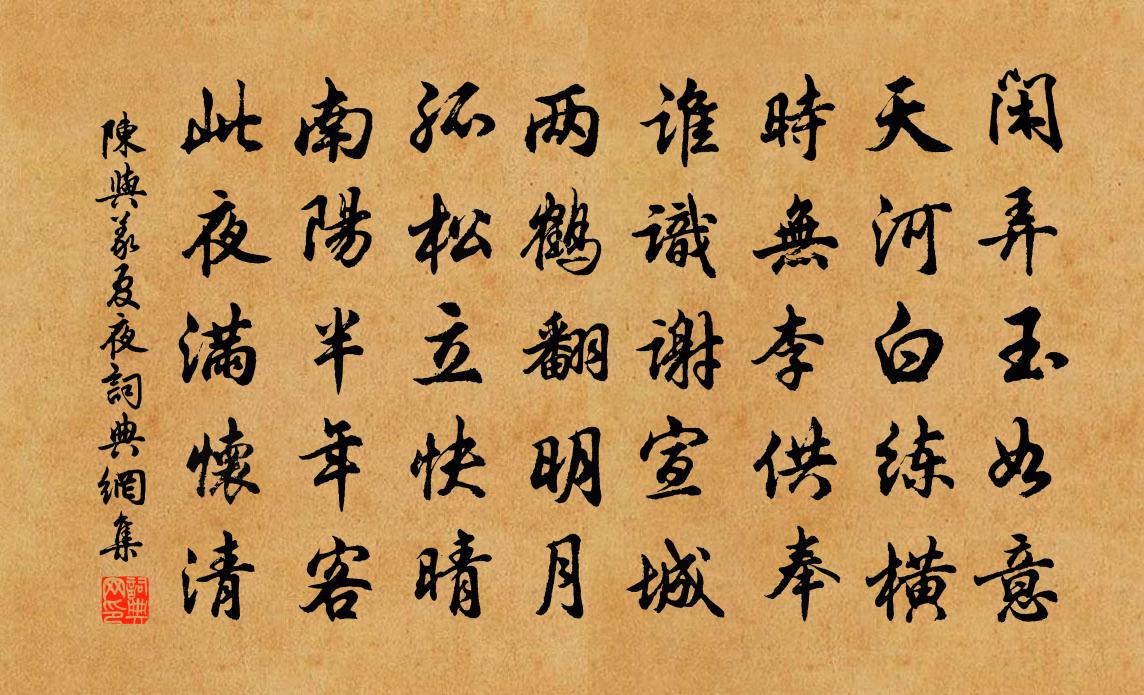 閑弄玉如意
天河白练橫
時無李供奉
谁識谢宣城
两鹤翻明月
孤松立快晴
南陽半年客
此夜满懷清
陳與義夏夜詞典網集
詞典网印